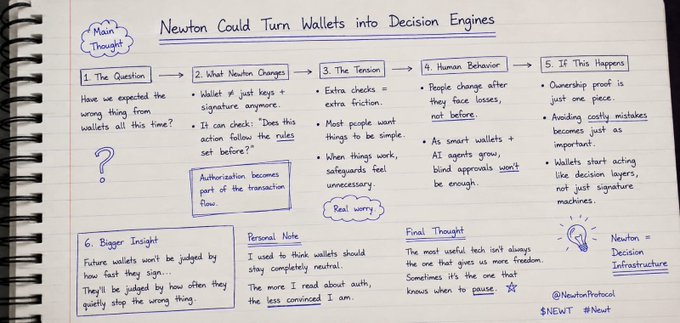 Main
Thought
Newton Could Turn Wallets into Decision Engines
1. The Question
Have we expected the
wrong thing from
wallets all this time?
?
2. What Newton Changes
• Wallet ≠ just keys +
signature anymore.
• It can check: "Does this
action follow the rules
set before?"
Authorization becomes
part of the transaction
flow.
3. The Tension
• Extra checks =
extra friction.
• Most people want
things to be simple.
• When things work,
safeguards feel
unnecessary.
Real worry
4. Human Behavior
• People change after
they face losses,
not before.
• As smart wallets +
AI agents grow,
blind approvals won't
be enough.
5. If This Happens
• Ownership proof is
just one piece.
• Avoiding costly mistakes
becomes just as
important.
• Wallets start acting
like decision layers,
not just signature
machines.
6. Bigger Insight
Future wallets won't be judged by
how fast they sign...
They'll be judged by how often they
quietly stop the wrong thing.
Personal Note
I used to think wallets should
stay completely neutral.
The more I read about auth,
the less convinced I am.
Final Thought
The most useful tech isn't always
the one that gives us more freedom.
Sometimes it's the one that
knows when to pause.
Newton =
Decision
Infrastructure
@NewtonProtocol
$NEWT #Newt